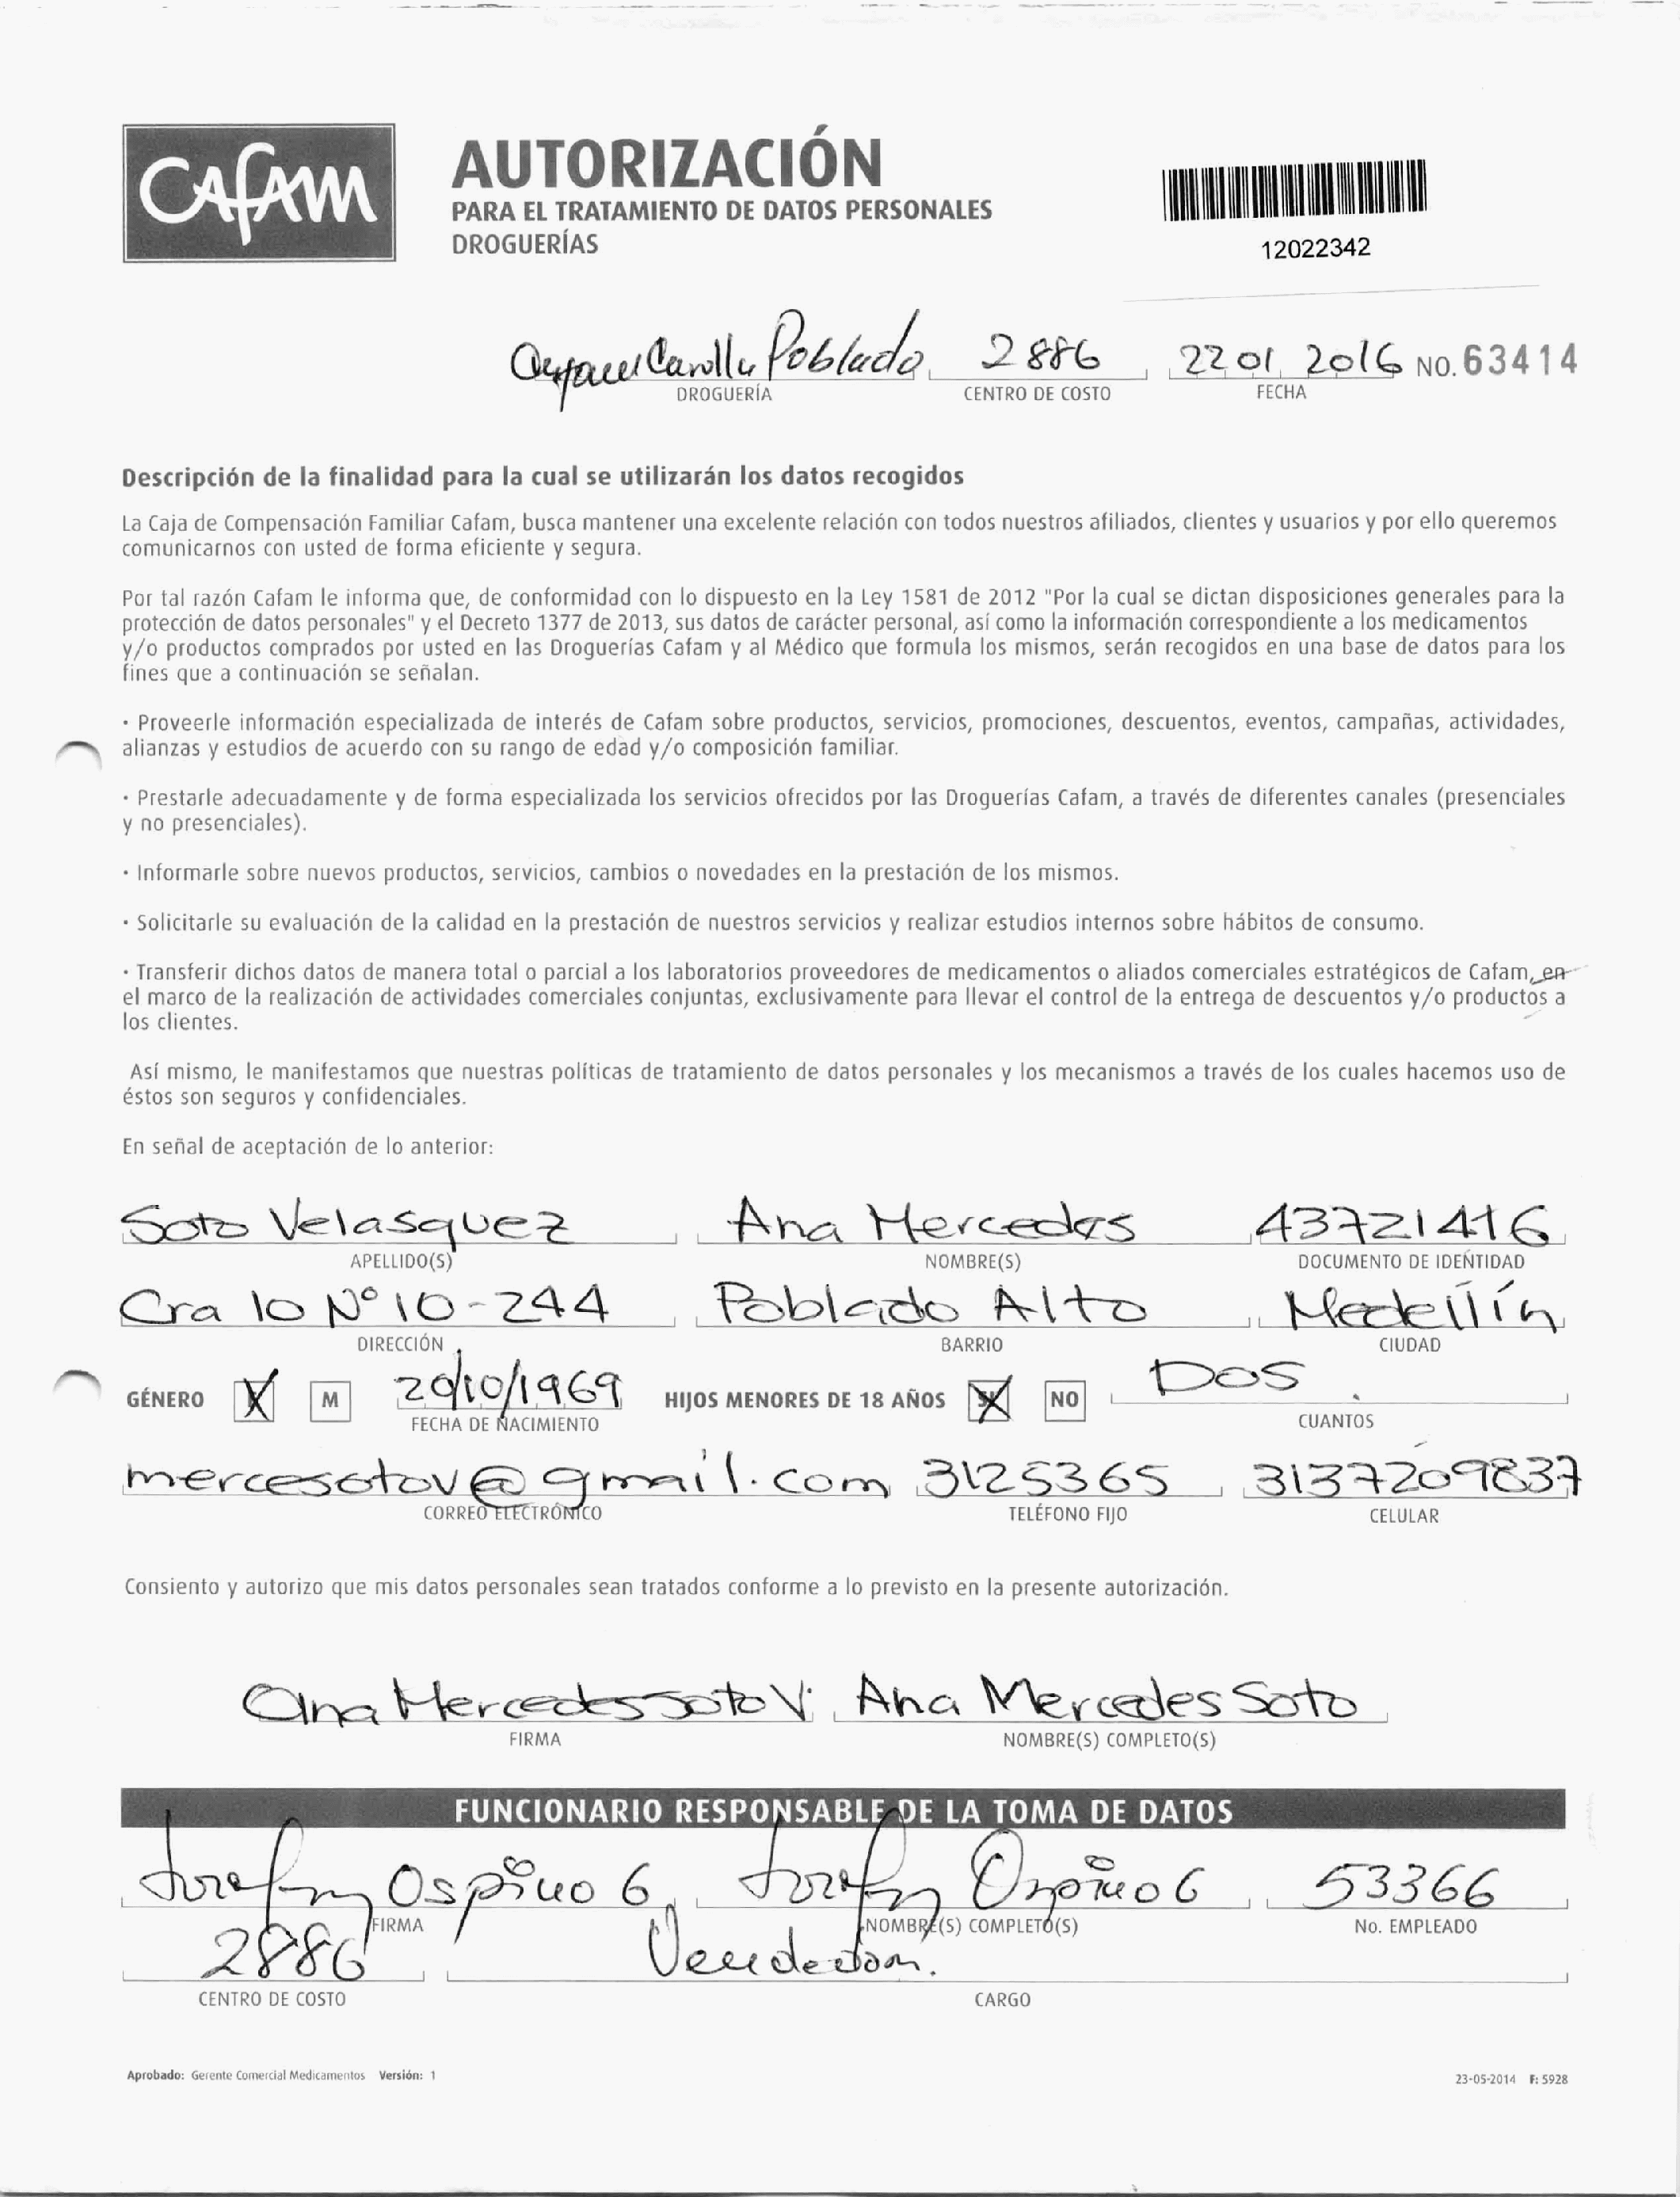 CAFAM
AUTORIZACIÓN
PARA EL TRATAMIENTO DE DATOS PERSONALES
DROGUERÍAS
12022342
Carulla Poblado 2886 22 01 2016 NO. 63414
DROGUERÍA CENTRO DE COSTO FECHA
Descripción de la finalidad para la cual se utilizarán los datos recogidos
La Caja de Compensación Familiar Cafam, busca mantener una excelente relación con todos nuestros afiliados, clientes y usuarios y por ello queremos
comunicarnos con usted de forma eficiente y segura.
Por tal razón Cafam le informa que, de conformidad con lo dispuesto en la Ley 1581 de 2012 "Por la cual se dictan disposiciones generales para la
protección de datos personales" y el Decreto 1377 de 2013, sus datos de carácter personal, así como la información correspondiente a los medicamentos
y/o productos comprados por usted en las Droguerías Cafam y al Médico que formula los mismos, serán recogidos en una base de datos para los
fines que a continuación se señalan.
· Proveerle información especializada de interés de Cafam sobre productos, servicios, promociones, descuentos, eventos, campañas, actividades,
alianzas y estudios de acuerdo con su rango de edad y/o composición familiar.
· Prestarle adecuadamente y de forma especializada los servicios ofrecidos por las Droguerías Cafam, a través de diferentes canales (presenciales
y no presenciales).
· Informarle sobre nuevos productos, servicios, cambios o novedades en la prestación de los mismos.
· Solicitarle su evaluación de la calidad en la prestación de nuestros servicios y realizar estudios internos sobre hábitos de consumo.
· Transferir dichos datos de manera total o parcial a los laboratorios proveedores de medicamentos o aliados comerciales estratégicos de Cafam, en
el marco de la realización de actividades comerciales conjuntas, exclusivamente para llevar el control de la entrega de descuentos y/o productos a
los clientes.
Así mismo, le manifestamos que nuestras políticas de tratamiento de datos personales y los mecanismos a través de los cuales hacemos uso de
éstos son seguros y confidenciales.
En señal de aceptación de lo anterior:
Soto Velasquez Ana Mercedes 43721416
APELLIDO(S) NOMBRE(S) DOCUMENTO DE IDENTIDAD
Cra 10 N° 10-244 Poblado Alto Medellín
DIRECCIÓN BARRIO CIUDAD
GÉNERO X M 20/10/1969 HIJOS MENORES DE 18 AÑOS X NO Dos
FECHA DE NACIMIENTO CUANTOS
mercesotov@gmail.com 3125365 3137209837
CORREO ELECTRÓNICO TELÉFONO FIJO CELULAR
Consiento y autorizo que mis datos personales sean tratados conforme a lo previsto en la presente autorización.
Ana Mercedes Soto V. Ana Mercedes Soto
FIRMA NOMBRE(S) COMPLETO(S)
FUNCIONARIO RESPONSABLE DE LA TOMA DE DATOS
Ospino G Ospino G 53366
FIRMA NOMBRE(S) COMPLETO(S) No. EMPLEADO
2886
CENTRO DE COSTO CARGO
Aprobado: Gerente Comercial Medicamentos Versión: 1 23-05-2014 F: 5928